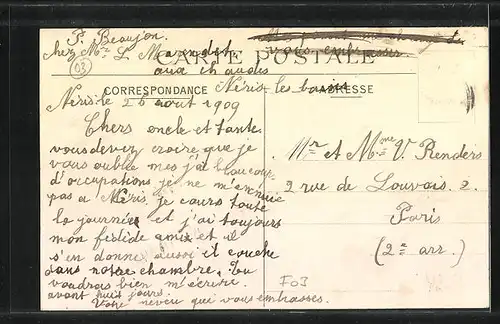 P. Beaujon
chez Mr L.
CARTE POSTALE
vous embrasser
aux chaudes
03
CORRESPONDANCE
Néris les bains
ADRESSE
Néris le 26 aout 1909
Chers oncle et tante
vous devez croire que je
vous oublie mes j'ai beaucoup
d'occupations je ne m'ennuie
pas a Néris, je cours toute
la journée et j'ai toujours
mon fidide ami et il
s'en donne aussi il couche
dans notre chambre. Tu
voudrais bien m'écrire
avant huit jours.
Votre neveu qui vous embrasses.
Mr et Mme V. Renders
2 rue de Louvois. 2.
Paris
(2e arr.)
F03